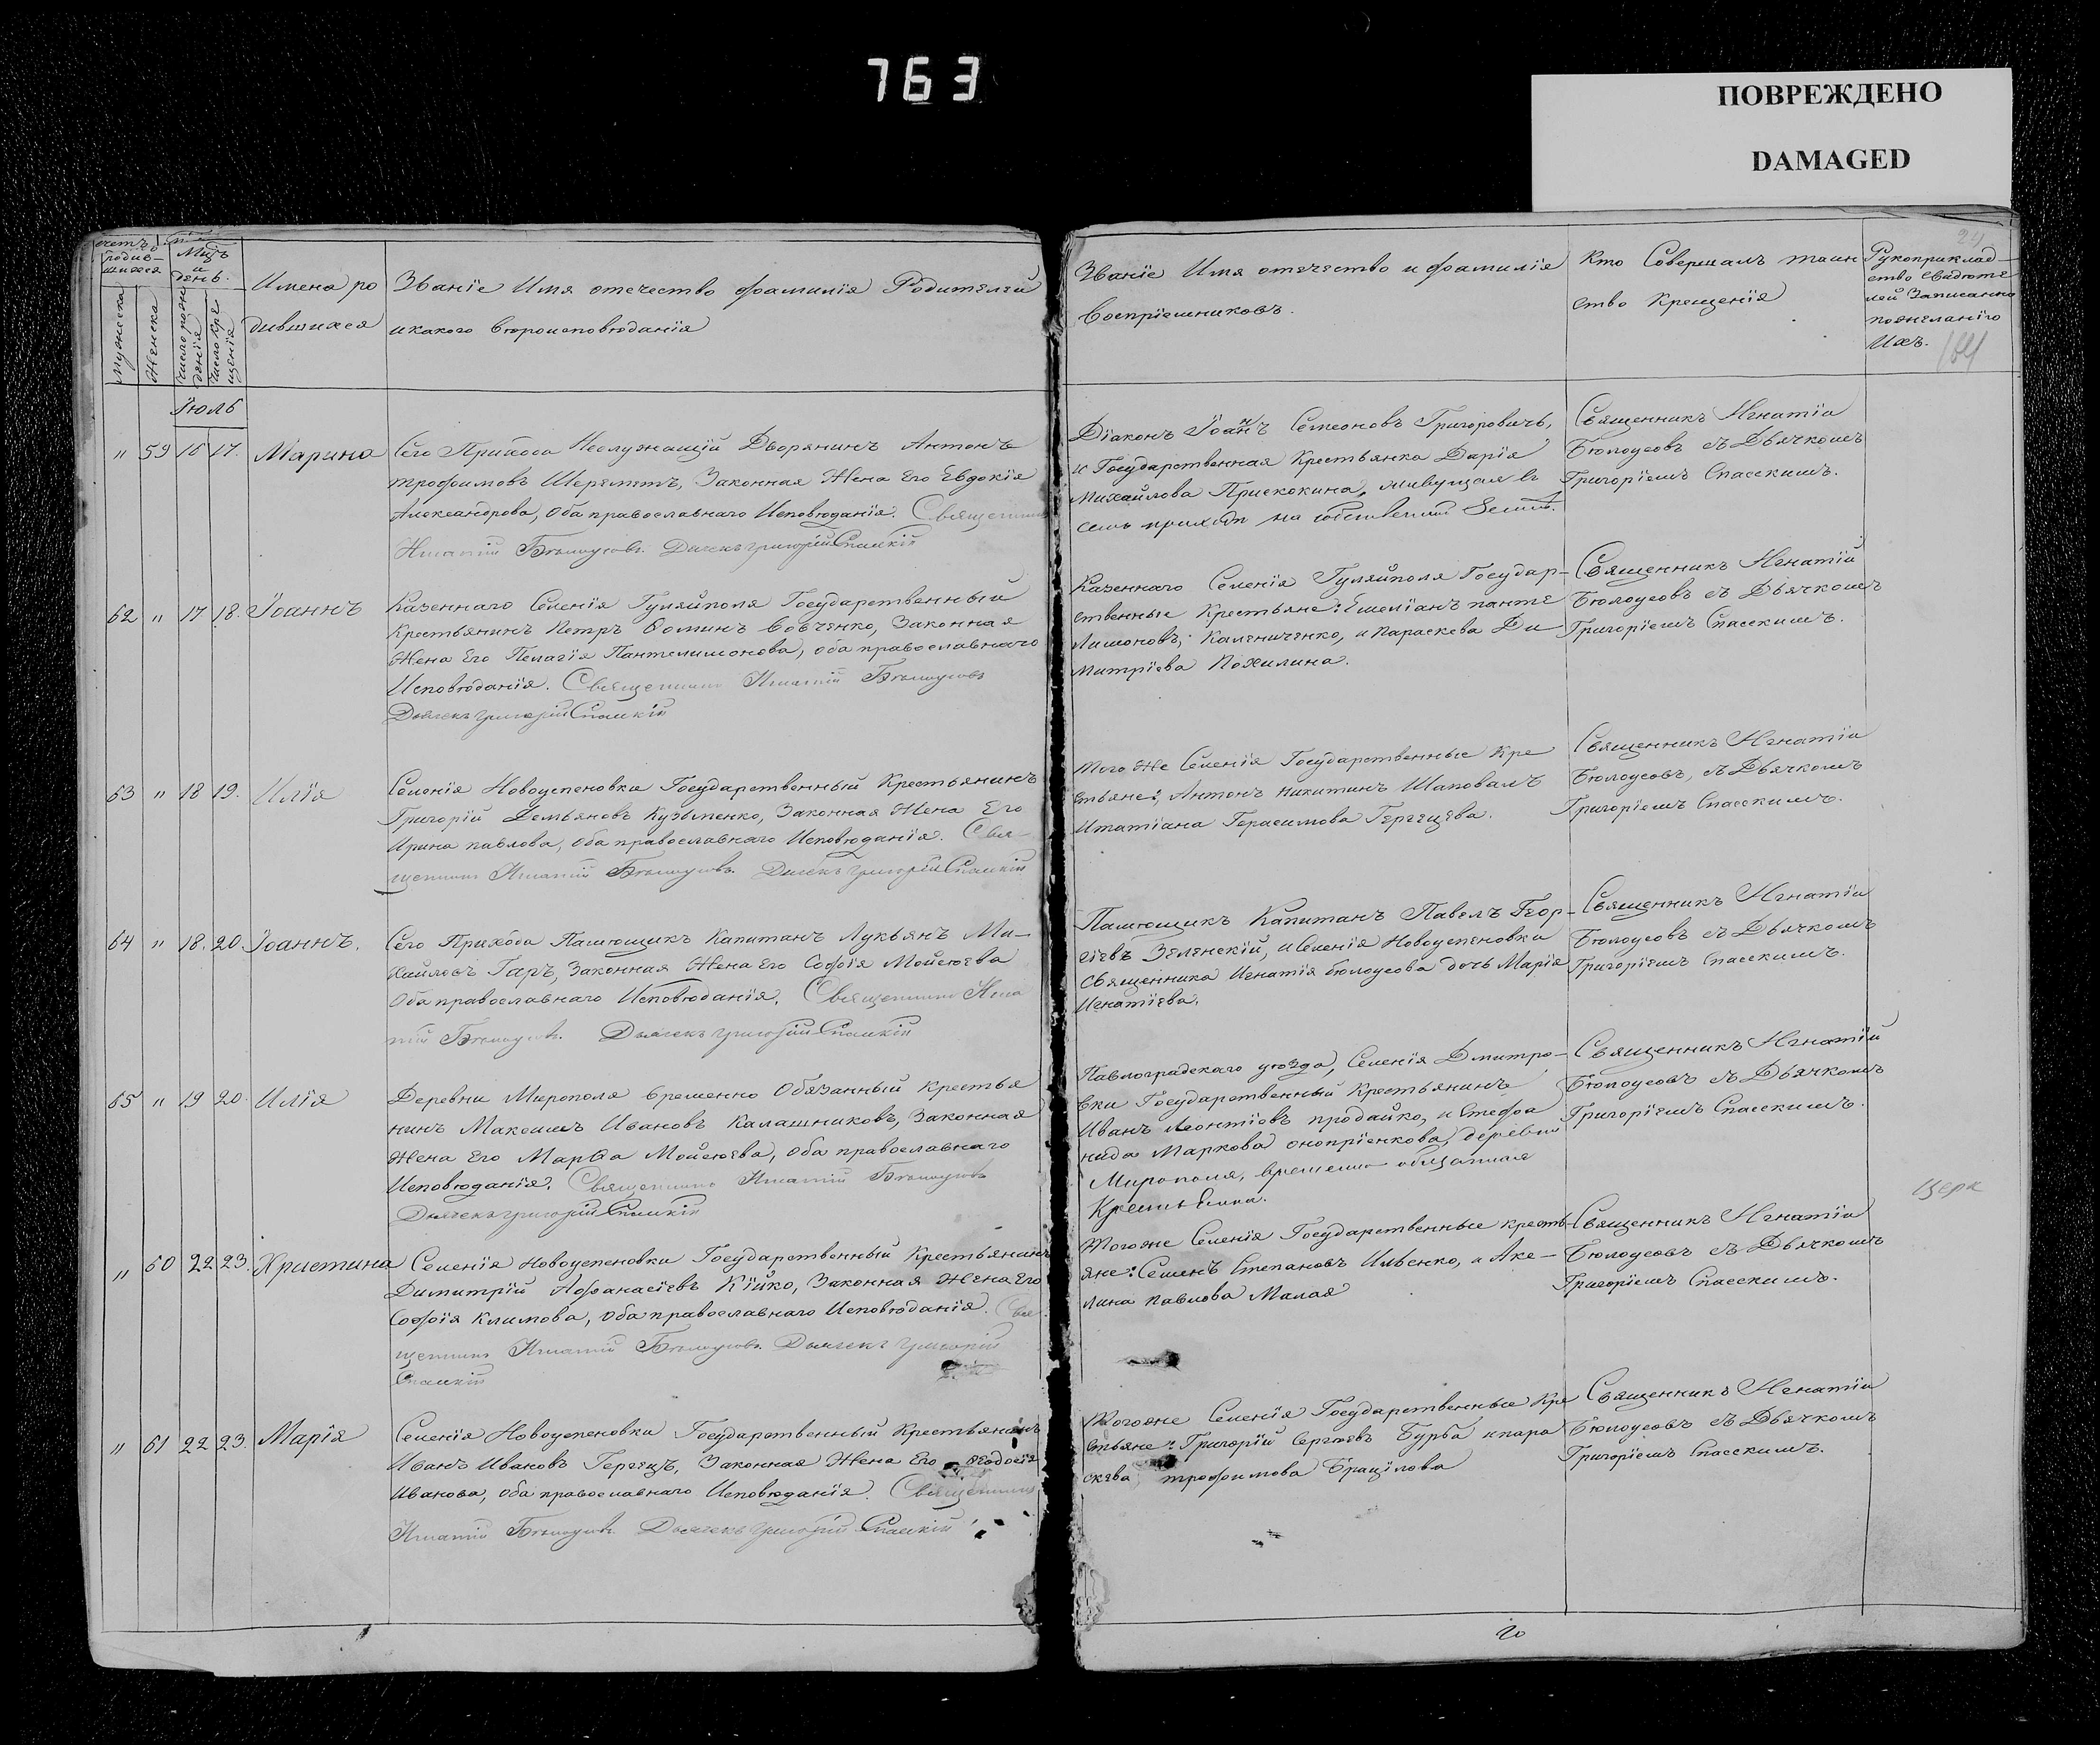 763
ПОВРЕЖДЕНО
DAMAGED
счетъ
родив-
шихся
Мужеска
Женска
Мцъ
и
день.
Число рож
денія
Число кре
щенія
Имена ро
дившихся
Званіе Имя отечество фамилія Родителей
икакого вѣроисповѣданія
Іюль
" 59 16 17. Марина
Сего Прихода Неслужащій Дворянинъ Антонъ
трофимовъ Шереметъ, Законная Жена Его Евдокія
Александрова, оба православнаго Исповѣданія. Священникъ
Игнатій Бѣлоусовъ. Дьячекъ Григорій Спасскій
62 " 17 18. Іоаннъ
Казеннаго Селенія Гуляйполя Государственный
Крестьянинъ Петръ Ѳоминъ Вовченко, Законная
Жена Его Пелагія Пантелимонова, оба православнаго
Исповѣданія. Священникъ Игнатій Бѣлоусовъ
Дьячекъ Григорій Спасскій
63 " 18 19. Илія
Селенія Новоуспеновки Государственный Крестьянинъ
Григорій Демьяновъ Кузьменко, Законная Жена Его
Ирина павлова, оба православнаго Исповѣданія. Свя-
щенникъ Игнатій Бѣлоусовъ. Дьячекъ Григорій Спасскій
64 " 18. 20. Іоаннъ.
Сего Прихода Помѣщикъ Капитанъ Лукьянъ Ми-
хайловъ Гаръ, Законная Жена Его Софія Мойсеѣва
Оба православнаго Исповѣданія. Священникъ Игна
тій Бѣлоусовъ. Дьячекъ Григорій Спасскій
65 " 19 20. Илія
Деревни Мирополя временно Обязанный крестья
нинъ Максимъ Ивановъ Калашниковъ, Законная
Жена Его Марѳа Мойсеѣва, оба православнаго
Исповѣданія. Священникъ Игнатій Бѣлоусовъ
Дьячекъ Григорій Спасскій
" 60 22 23. Христина
Селенія Новоуспеновки Государственный Крестьянинъ
Димитрій Афанасіевъ Кійко, Законная Жена Его
Софія Климова, оба православнаго Исповѣданія. Свя
щенникъ Игнатій Бѣлоусовъ. Дьячекъ Григорій
Спасскій
" 61 22 23. Марія
Селенія Новоуспеновки Государственный Крестьянинъ
Иванъ Ивановъ Гергецъ, Законная Жена Его Ѳеодосія
Иванова, оба православнаго Исповѣданія. Священникъ
Игнатій Бѣлоусовъ. Дьячекъ Григорій Спасскій
Званіе Имя отечество и фамилія
Воспріемниковъ.
Кто Совершалъ таин
ство Крещенія
24
Рукоприклад-
ство Свидѣте
лей Записанно
пожеланію
Ихъ.
Діаконъ Іоаннъ Семеоновъ Григоровичь,
и Государственная Крестьянка Дарія
Михайлова Прискокина, живущая въ
семъ приходѣ на собственной Землѣ.
Священникъ Игнатій
Бѣлоусовъ съ Дьячкомъ
Григоріемъ Спасскимъ.
Казеннаго Селенія Гуляйполя Государ-
ственные Крестьяне: Емеліанъ панте
лимоновъ, Калениченко, и Параскева Ди
митріева Похилина.
Священникъ Игнатій
Бѣлоусовъ съ Дьячкомъ
Григоріемъ Спасскимъ.
Того Же Селенія Государственные Кре
стьяне: Антонъ никитинъ Шаповалъ
Итатіана Герасимова Гергецева.
Священникъ Игнатій
Бѣлоусовъ, съ Дьячкомъ
Григоріемъ Спасскимъ.
Помѣщикъ Капитанъ Павелъ Геор-
гіевъ Зеленскій, и Селенія Новоуспеновки
священника Игнатія бѣлоусова дочь Марія
Игнатіева.
Священникъ Игнатій
Бѣлоусовъ съ Дьячкомъ
Григоріемъ Спасскимъ.
Павлоградскаго уѣзда, Селенія Дмитро-
вки Государственный Крестьянинъ
Иванъ леонтіовъ продайко, и Стефа
нида Маркова оноприенкова, деревни
Мирополя, временно обязанная
Крестьянка.
Священникъ Игнатій
Бѣлоусовъ съ Дьячкомъ
Григоріемъ Спасскимъ.
Тогоже Селенія Государственные кресть-
яне: Семенъ Степановъ Ильенко, и Аке-
лина павлова Малая
Священникъ Игнатій
Бѣлоусовъ съ Дьячкомъ
Григоріемъ Спасскимъ.
Тогоже Селенія Государственные Кре
стьяне: Григорій Сергѣевъ Бурба ипара
скева трофимова Брацілова
Священникъ Игнатій
Бѣлоусовъ съ Дьячкомъ
Григоріемъ Спасскимъ.